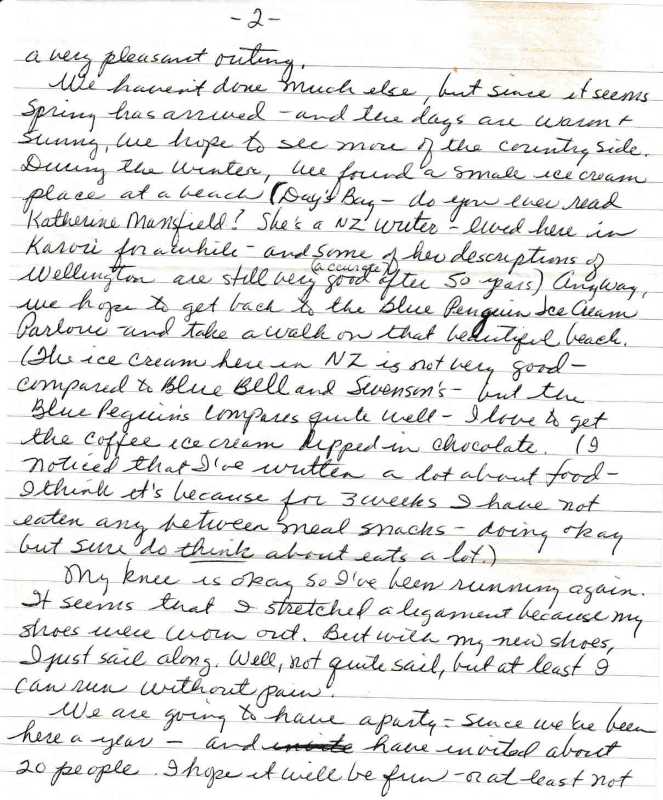 -2-
a very pleasant outing.
We haven't done much else, but since it seems
Spring has arrived - and the days are warm +
sunny, we hope to see more of the countryside.
During the winter, we found a small ice cream
place at a beach (Day's Bay - do you ever read
Katherine Mansfield? She's a NZ writer - lived here in
Karori for awhile - and some of her descriptions of
Wellington are still very good (accurate) after 50 years) Anyway,
we hope to get back to the Blue Penguin Ice Cream
Parlour and take a walk on that beautiful beach.
(The ice cream here in NZ is not very good -
compared to Blue Bell and Swenson's - but the
Blue Peguin's compares quite well - I love to get
the coffee ice cream dipped in chocolate. (I
noticed that I've written a lot about food -
I think it's because for 3 weeks I have not
eaten any between meal snacks - doing okay
but sure do think about eats a lot.)
My knee is okay so I've been running again.
It seems that I stretched a ligament because my
shoes were worn out. But with my new shoes,
I just sail along. Well, not quite sail, but at least I
can run without pain.
We are going to have a party - since we've been
here a year - and invite have invited about
20 people. I hope it will be fun - or at least not